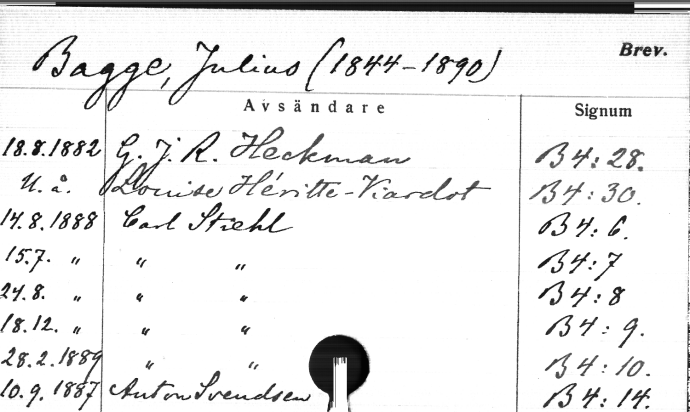 Bagge, Julius (1844-1890) Brev.
Avsändare Signum
18.8.1882 G. J. R. Heckman B 4: 28.
U. å. Louise Héritte-Viardot B 4: 30.
14.8.1888 Carl Stiehl B 4: 6.
15.7. " " " B 4: 7
24.8. " " " B 4: 8
18.12. " " " B 4: 9.
28.2.1889 " " B 4: 10.
10.9.1887 Anton Svendsen B 4: 14.